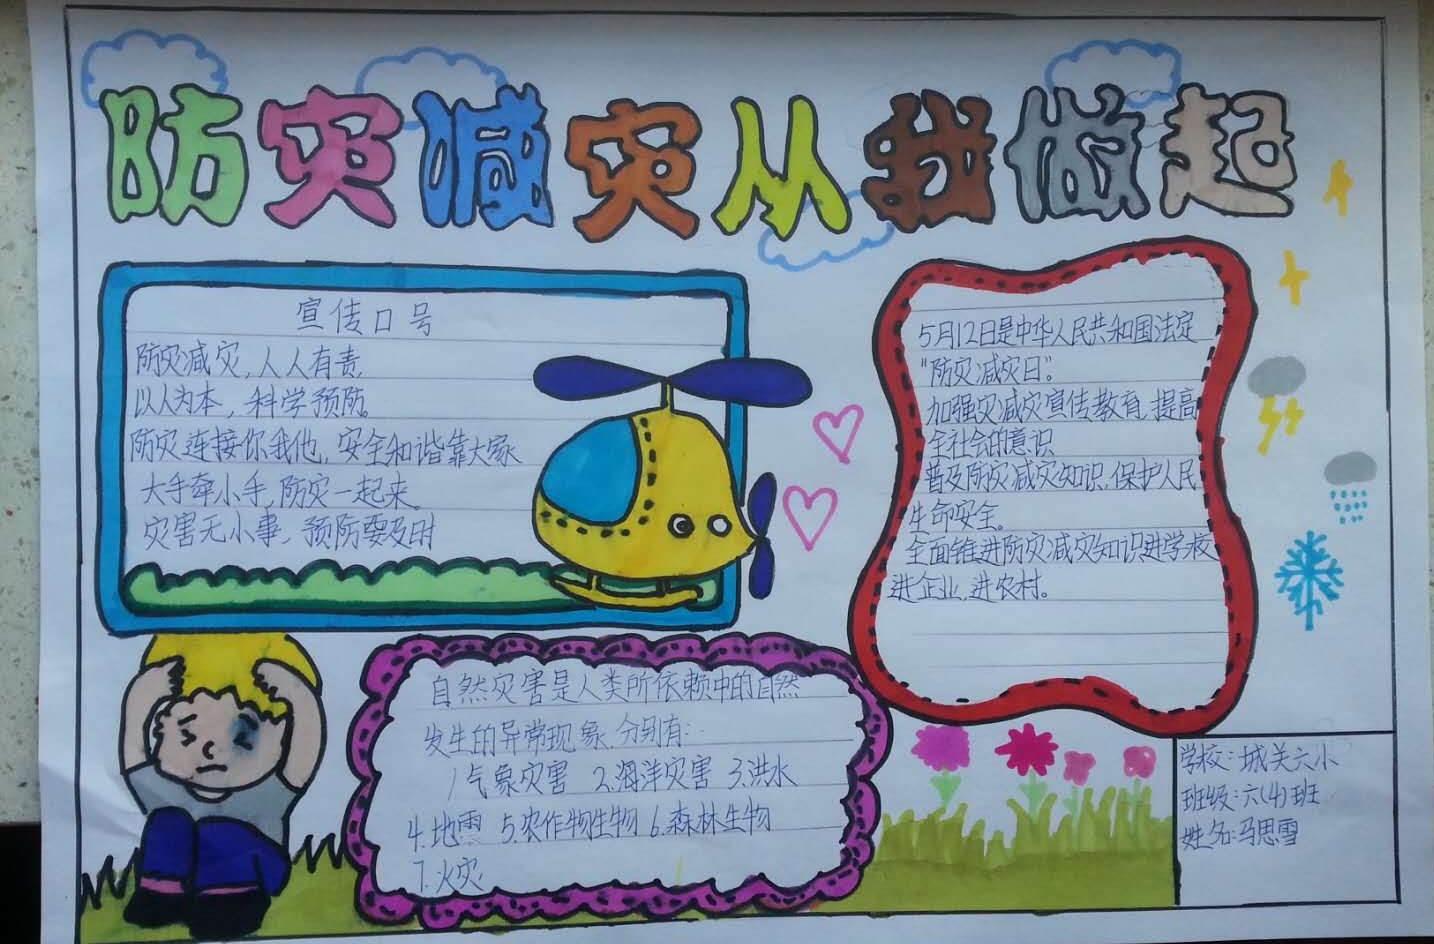 防灾减灾从我做起
宣传口号
防灾减灾,人人有责
以人为本,科学预防。
防灾连接你我他,安全和谐靠大家
大手牵小手,防灾一起来。
灾害无小事,预防要及时
5月12日是中华人民共和国法定
“防灾减灾日”。
加强灾减灾宣传教育,提高
全社会的意识
普及防灾减灾知识,保护人民
生命安全。
全面推进防灾减灾知识进学校
进企业,进农村。
自然灾害是人类所依赖中的自然
发生的异常现象,分别有:
1气象灾害 2.海洋灾害 3.洪水
4.地震 5.农作物生物 6.森林生物
7.火灾
学校:城关六小
班级:六(4)班
姓名:马思雪